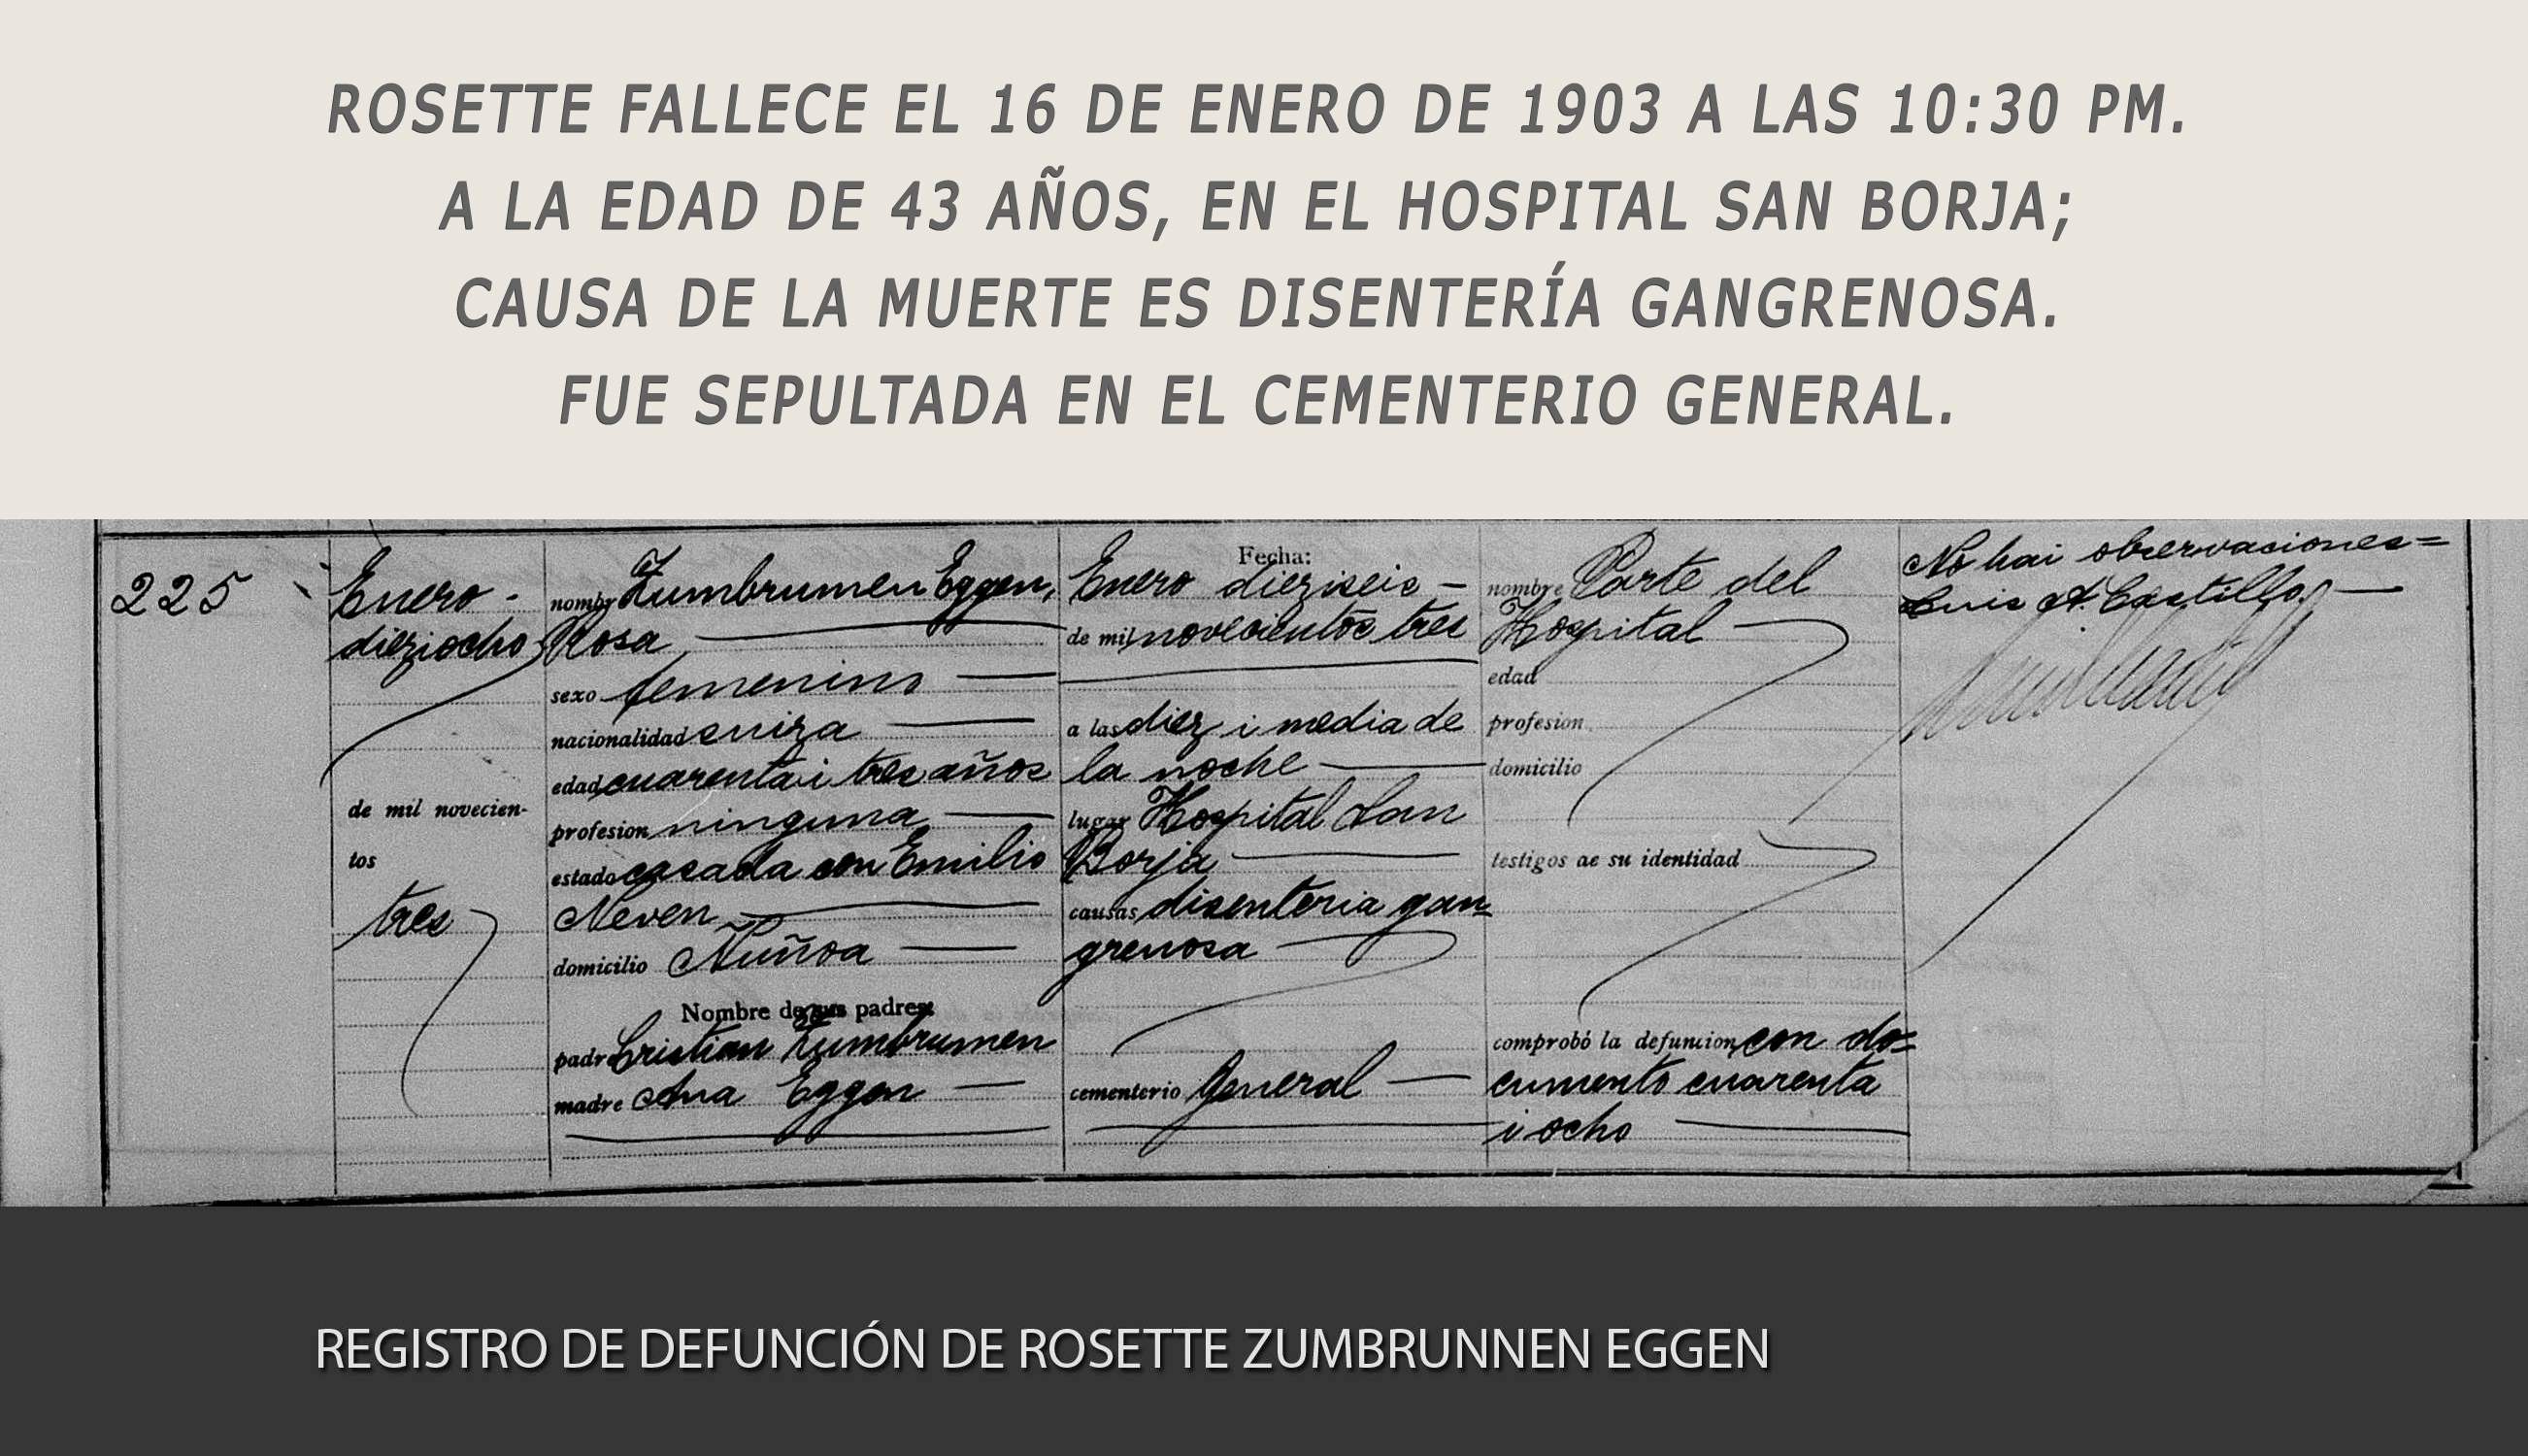 ROSETTE FALLECE EL 16 DE ENERO DE 1903 A LAS 10:30 PM.
A LA EDAD DE 43 AÑOS, EN EL HOSPITAL SAN BORJA;
CAUSA DE LA MUERTE ES DISENTERÍA GANGRENOSA.
FUE SEPULTADA EN EL CEMENTERIO GENERAL.
225
Enero -
dieziocho
de mil novecien-
tos
tres
nombre Zumbrumen Eggen,
Rosa
sexo femenino
nacionalidad suiza
edad cuarenta i tres años
profesion ninguna
estado casada con Emilio
Neven
domicilio Ñuñoa
Nombre de sus padres:
padre Cristian Zumbrumen
madre Ana Eggen
Fecha:
Enero dieziseis -
de mil novecientos tres
a las diez i media de
la noche
lugar Hospital San
Borja
causas disenteria gan=
grenosa
cementerio General
nombre Parte del
Hospital
edad
profesion
domicilio
testigos de su identidad
comprobó la defuncion con do=
cumento cuarenta
i ocho
No hai observaciones=
Luis A. Castillo
REGISTRO DE DEFUNCIÓN DE ROSETTE ZUMBRUNNEN EGGEN